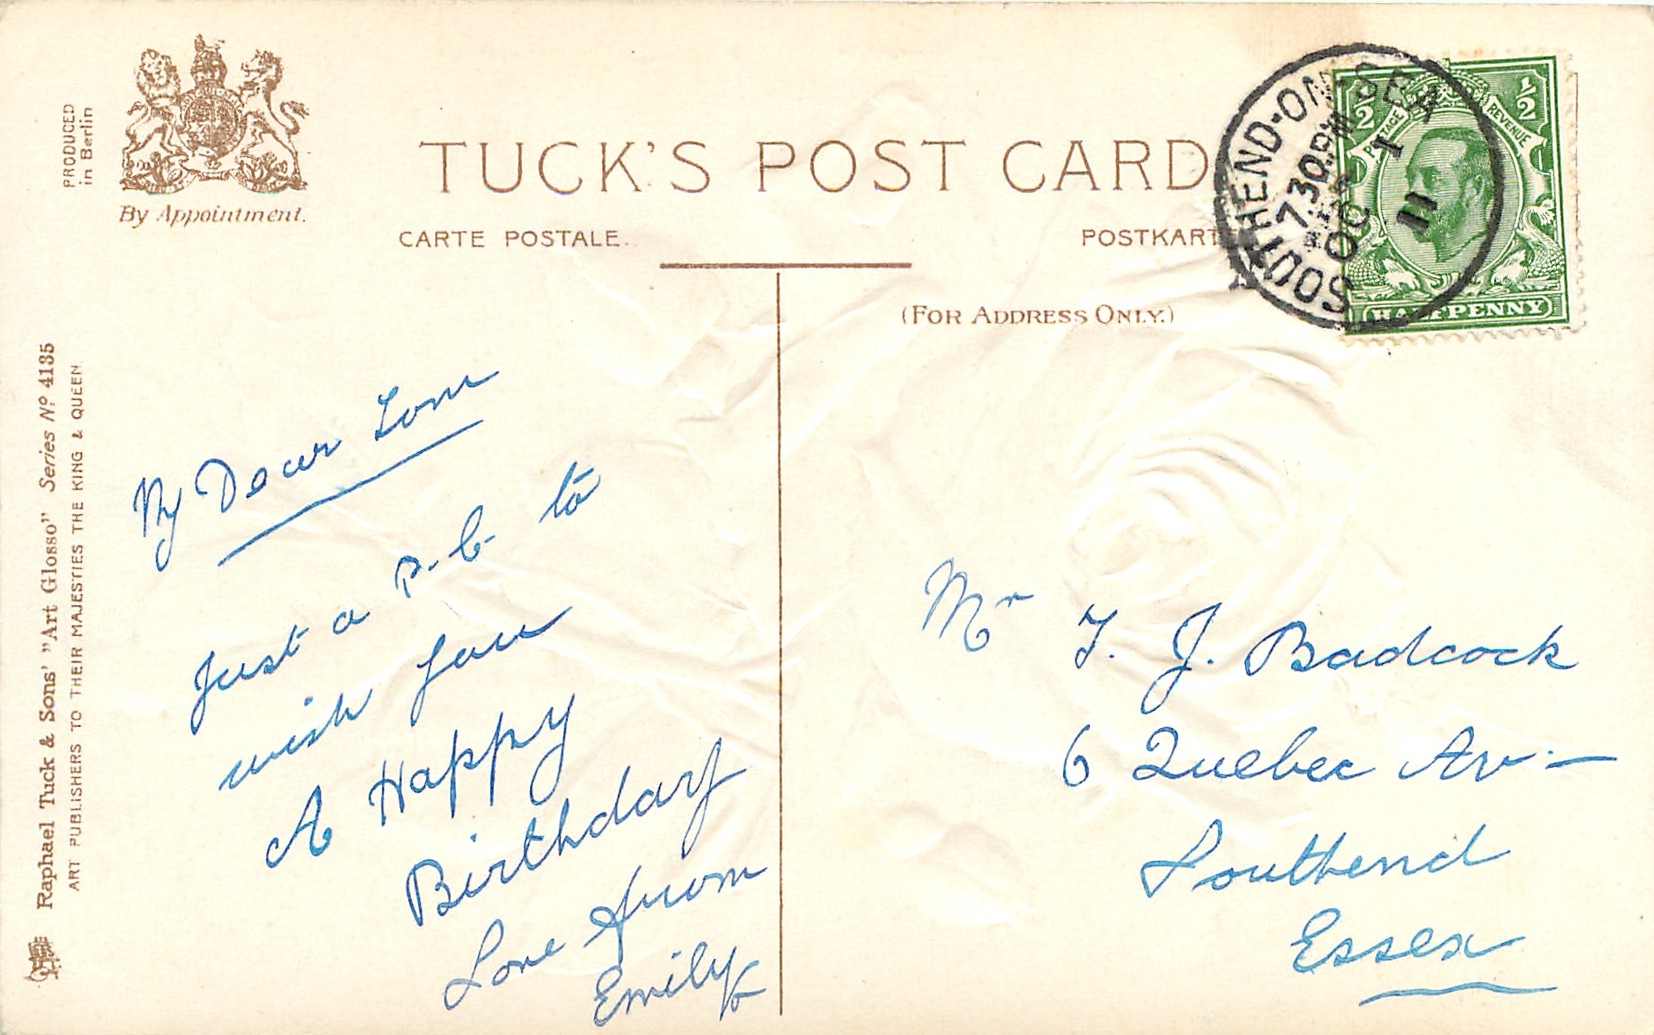 PRODUCED
in Berlin
By Appointment.
TUCK'S POST CARD
CARTE POSTALE.
POSTKART
(FOR ADDRESS ONLY.)
SOUTHEND-ON-SEA
7 30PM
OC 1
11
POSTAGE REVENUE
1/2 1/2
HALFPENNY
Raphael Tuck & Sons' "Art Glosso" Series Nº 4135
ART PUBLISHERS TO THEIR MAJESTIES THE KING & QUEEN
My Dear Tom
Just a p.c. to
wish you
A Happy
Birthday
Love from
Emily
Mr T. J. Badcock
6 Quebec Av:—
Southend
Essex